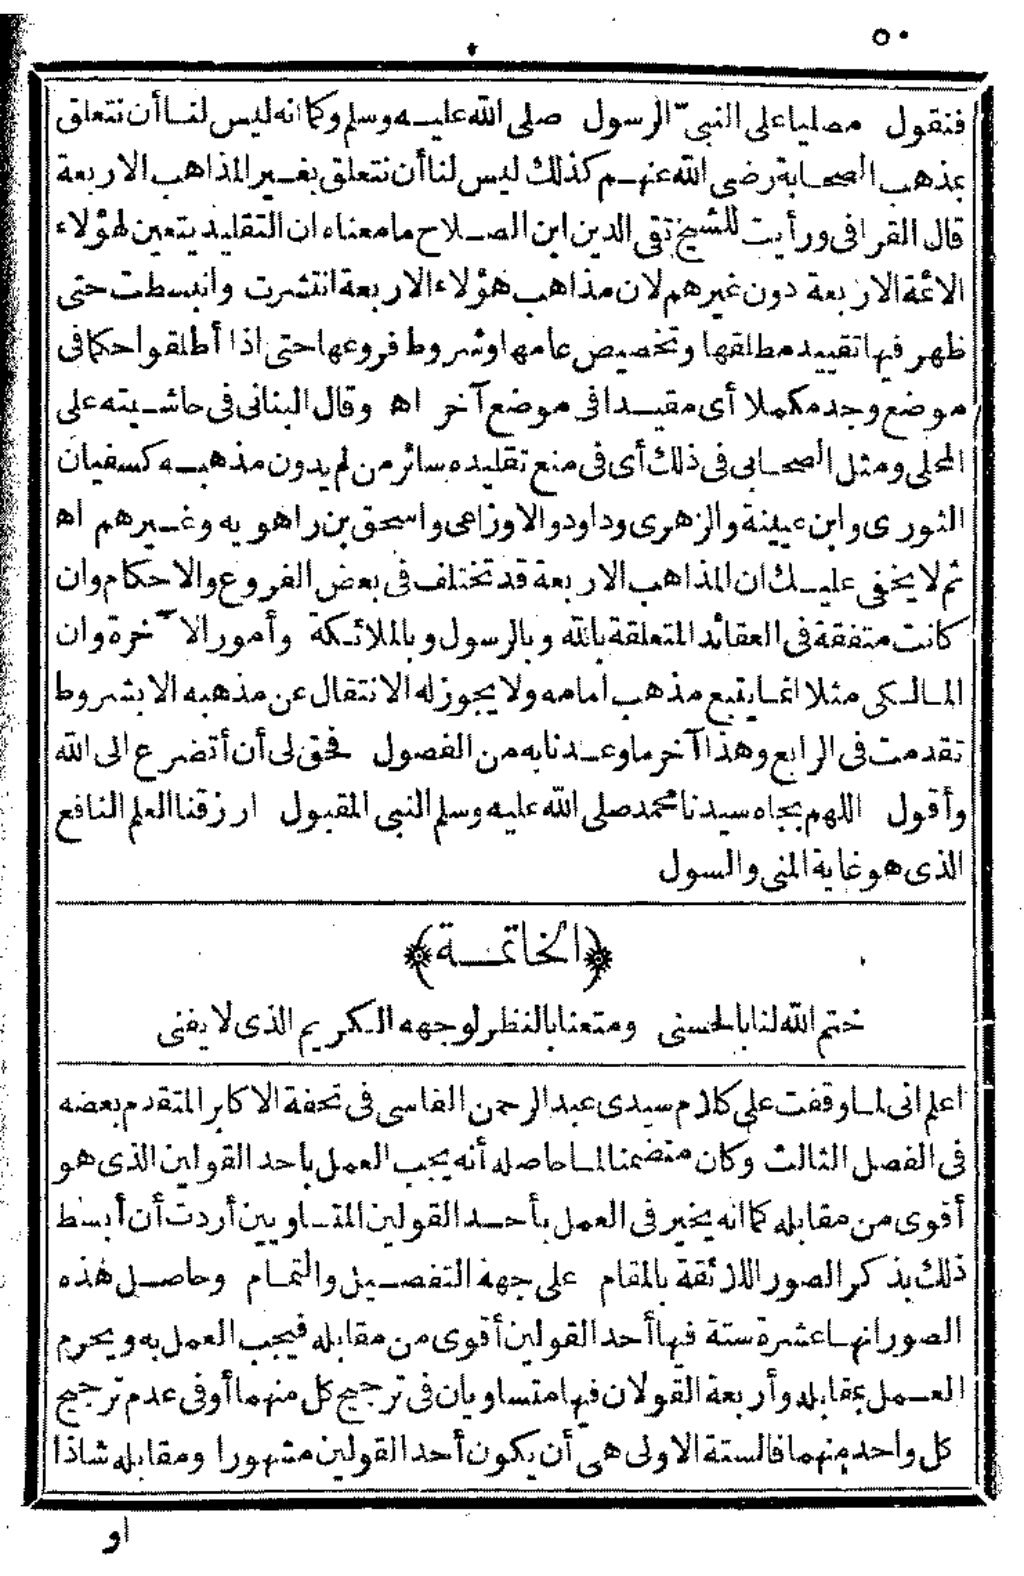 ٥٠
فنقول مصليا على النبىّ الرسول صلى الله عليه وسلم وكما انه ليس لنا أن نتعلق
بمذهب الصحابة رضى الله عنهم كذلك ليس لنا أن نتعلق بغير المذاهب الاربعة
قال القرافى ورأيت للشيخ تقى الدين ابن الصلاح ما معناه ان التقليد يتعين لهؤلاء
الائمة الاربعة دون غيرهم لان مذاهب هؤلاء الاربعة انتشرت وانبسطت حتى
ظهر فيها تقييد مطلقها وتخصيص عامها وشروط فروعها حتى اذا أطلقوا حكما فى
موضع وجد مكملا أى مقيدا فى موضع آخر اه وقال البنانى فى حاشيته على
المحلى ومثل الصحابى فى ذلك أى فى منع تقليده سائر من لم يدون مذهبه كسفيان
الثورى وابن عيينة والزهرى وداود والاوزاعى واسحق بن راهويه وغيرهم اه
ثم لا يخفى عليك ان المذاهب الاربعة قد تختلف فى بعض الفروع والاحكام وان
كانت متفقة فى العقائد المتعلقة بالله وبالرسول وبالملائكة وأمور الآخرة وان
المالكى مثلا انما يتبع مذهب امامه ولا يجوز له الانتقال عن مذهبه الا بشروط
تقدمت فى الرابع وهذا آخر ما وعدنا به من الفصول فحق لى أن أتضرع الى الله
وأقول اللهم بجاه سيدنا محمد صلى الله عليه وسلم النبى المقبول ارزقنا العلم النافع
الذى هو غاية المنى والسول
﴿الخاتمة﴾
ختم الله لنا بالحسنى ومتعنا بالنظر لوجهه الكريم الذى لا يفنى
اعلم انى لما وقفت على كلام سيدى عبد الرحمن الفاسى فى تحفة الاكابر المتقدم بعضه
فى الفصل الثالث وكان متضمنا لما حاصله أنه يجب العمل باحد القولين الذى هو
أقوى من مقابله كما انه يخير فى العمل بأحد القولين المتساويين أردت أن أبسط
ذلك بذكر الصور اللائقة بالمقام على جهة التفصيل والتمام وحاصل هذه
الصور انها عشرة ستة فيها أحد القولين أقوى من مقابله فيجب العمل به ويحرم
العمل بمقابله وأربعة القولان فيها متساويان فى ترجيح كل منهما أوفى عدم ترجيح
كل واحد منهما فالستة الاولى هى أن يكون أحد القولين مشهورا ومقابله شاذا
او